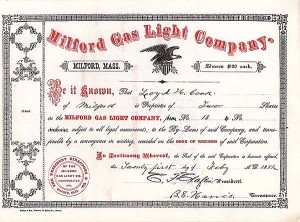 Milford Gas Light Company.
MILFORD, MASS.
Shares $20 each.
Be it Known, That Lloyd H. Cook
of Milford is Proprietor of Two Shares
in the MILFORD GAS LIGHT COMPANY, from No. 18 to No.
inclusive, subject to all legal assessments, to the By-Laws of said Company, and trans-
ferable by a conveyance in writing, recorded on the BOOK OF RECORDS of said Corporation.
In Testimony Whereof, the Seal of the said Corporation is hereunto affixed,
this Twenty first day of July A.D.
President.
B. E. Harris, TREASURER.
MILFORD
GAS LIGHT CO.